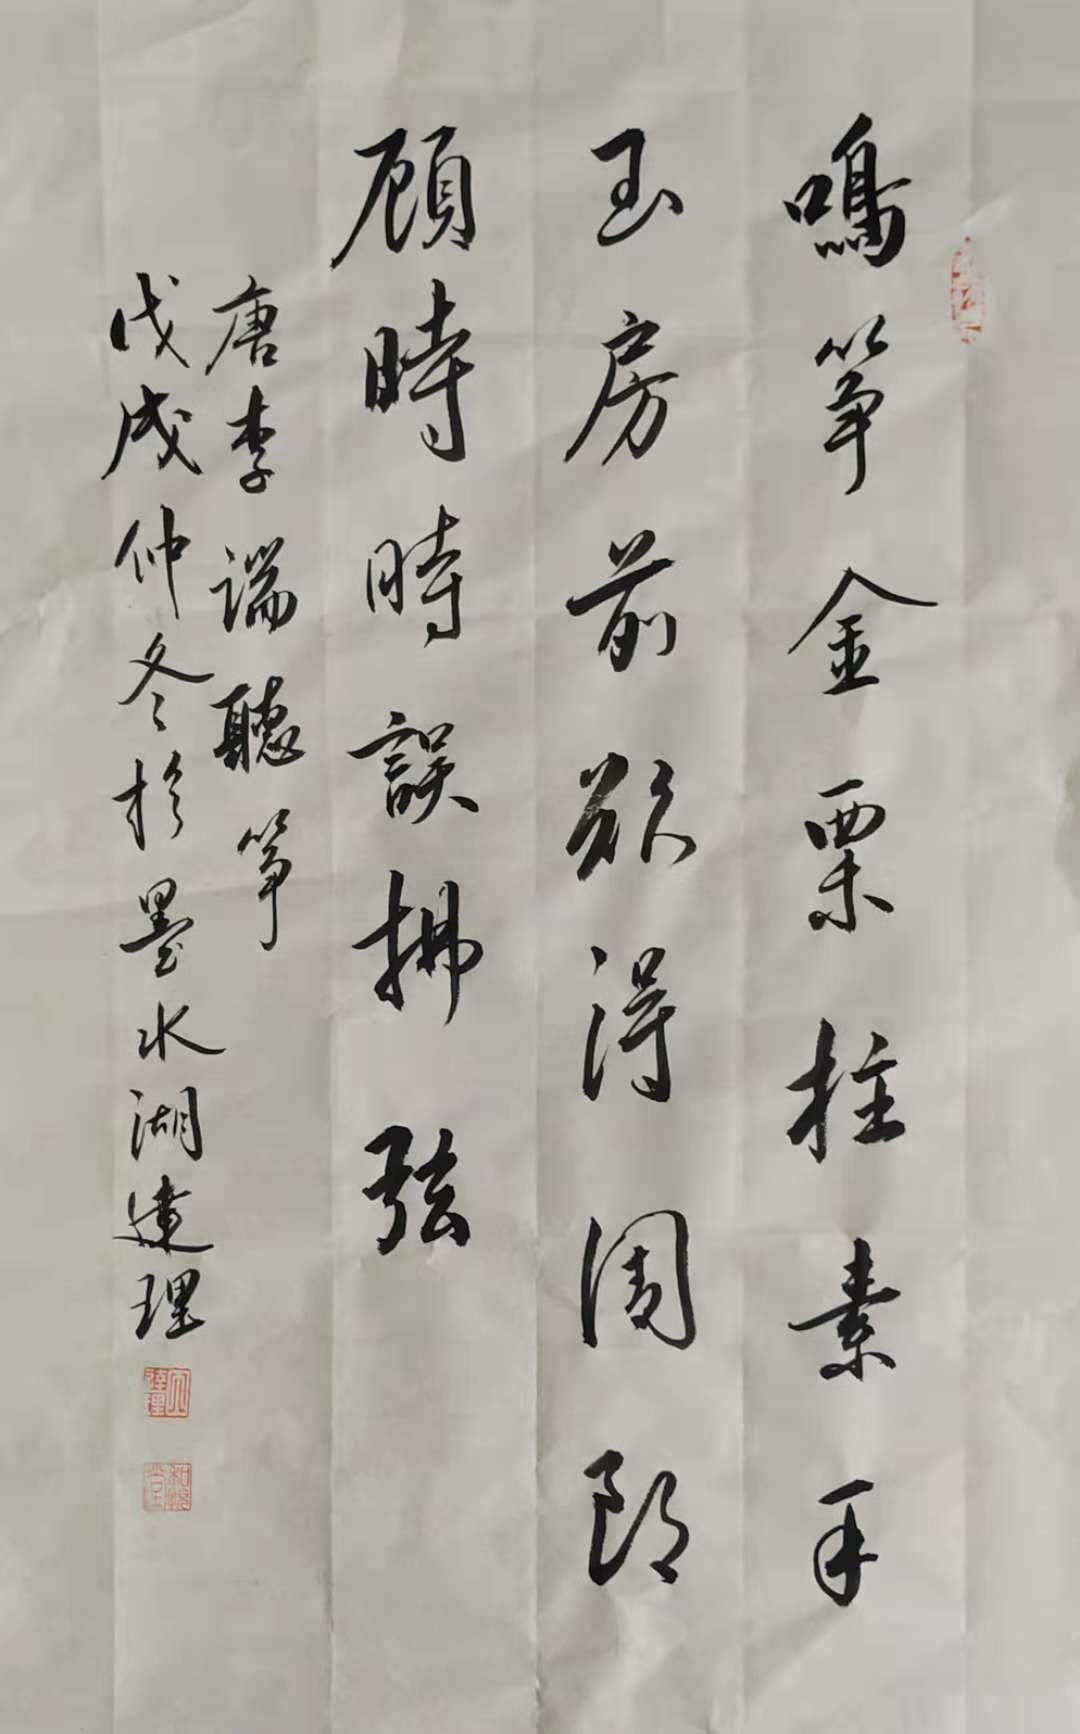 鳴箏金栗柱素手
玉房前欲得周郎
顧時時誤拂弦
唐李端聽箏
戊戌仲冬於墨水湖達理